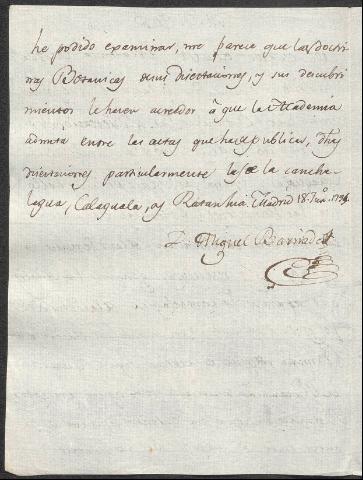 he podido examinar, me parece que las doctri
nas Botanicas de sus Disertaciones, y sus descubri
mientos le hacen acreedor à que la Academia
admita entre las actas que hace publicas, dhas
disertaciones particularmente las de la cancha-
lagua, Calaguala, y Ratanhia. Madrid 18. Jun.º
Miguel Barnades